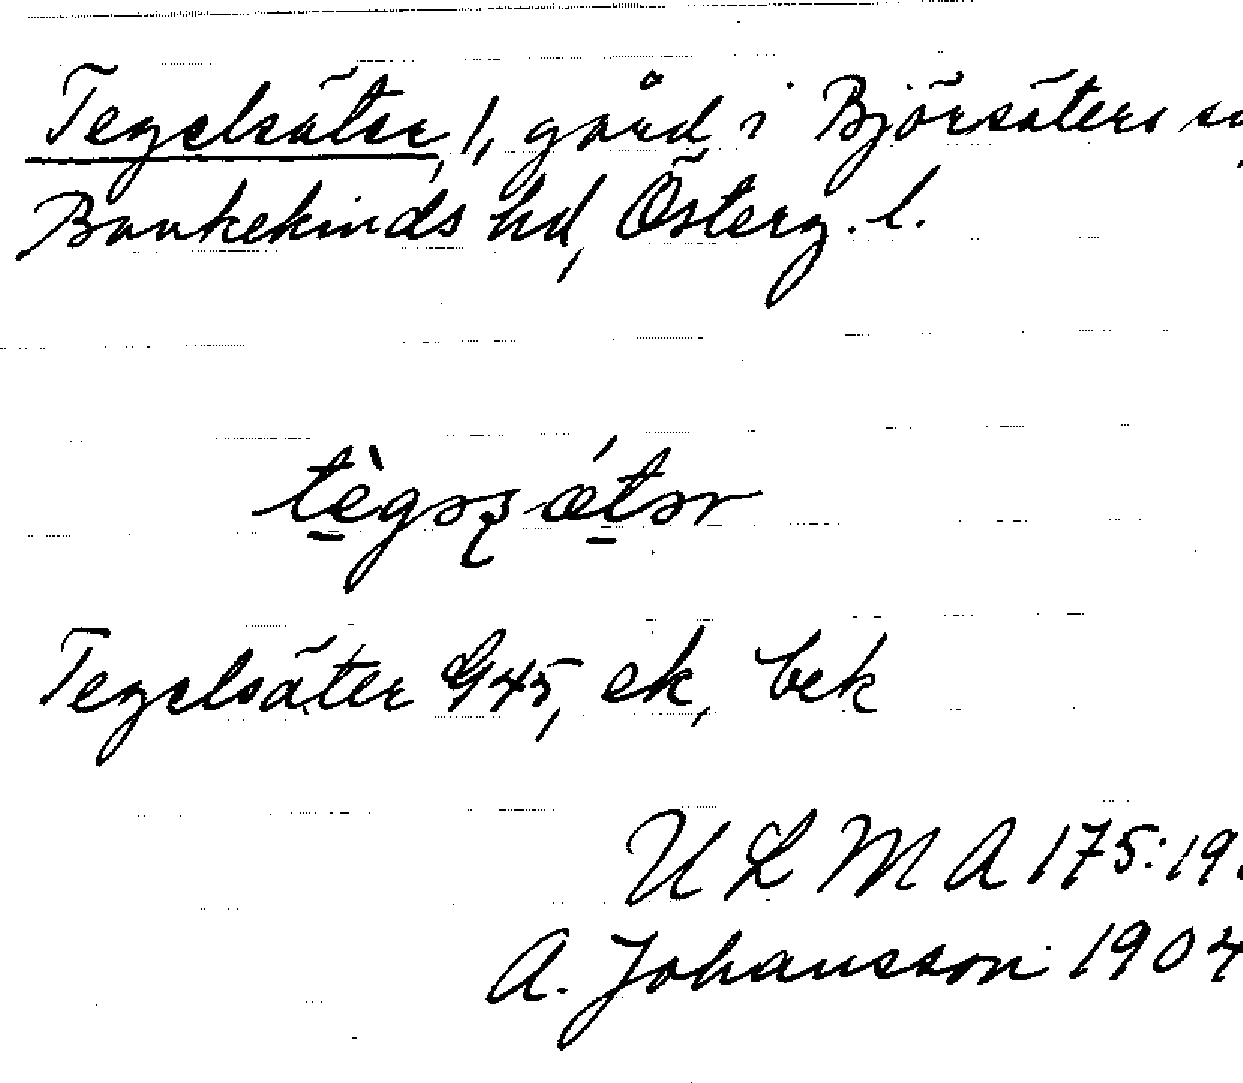 Tegelsäter, 1, gård i Björsäters
Bankekinds hd, Österg. l.
Tegelsäter G45, ek, bek
ULMA 175:19.
A. Johansson 1904